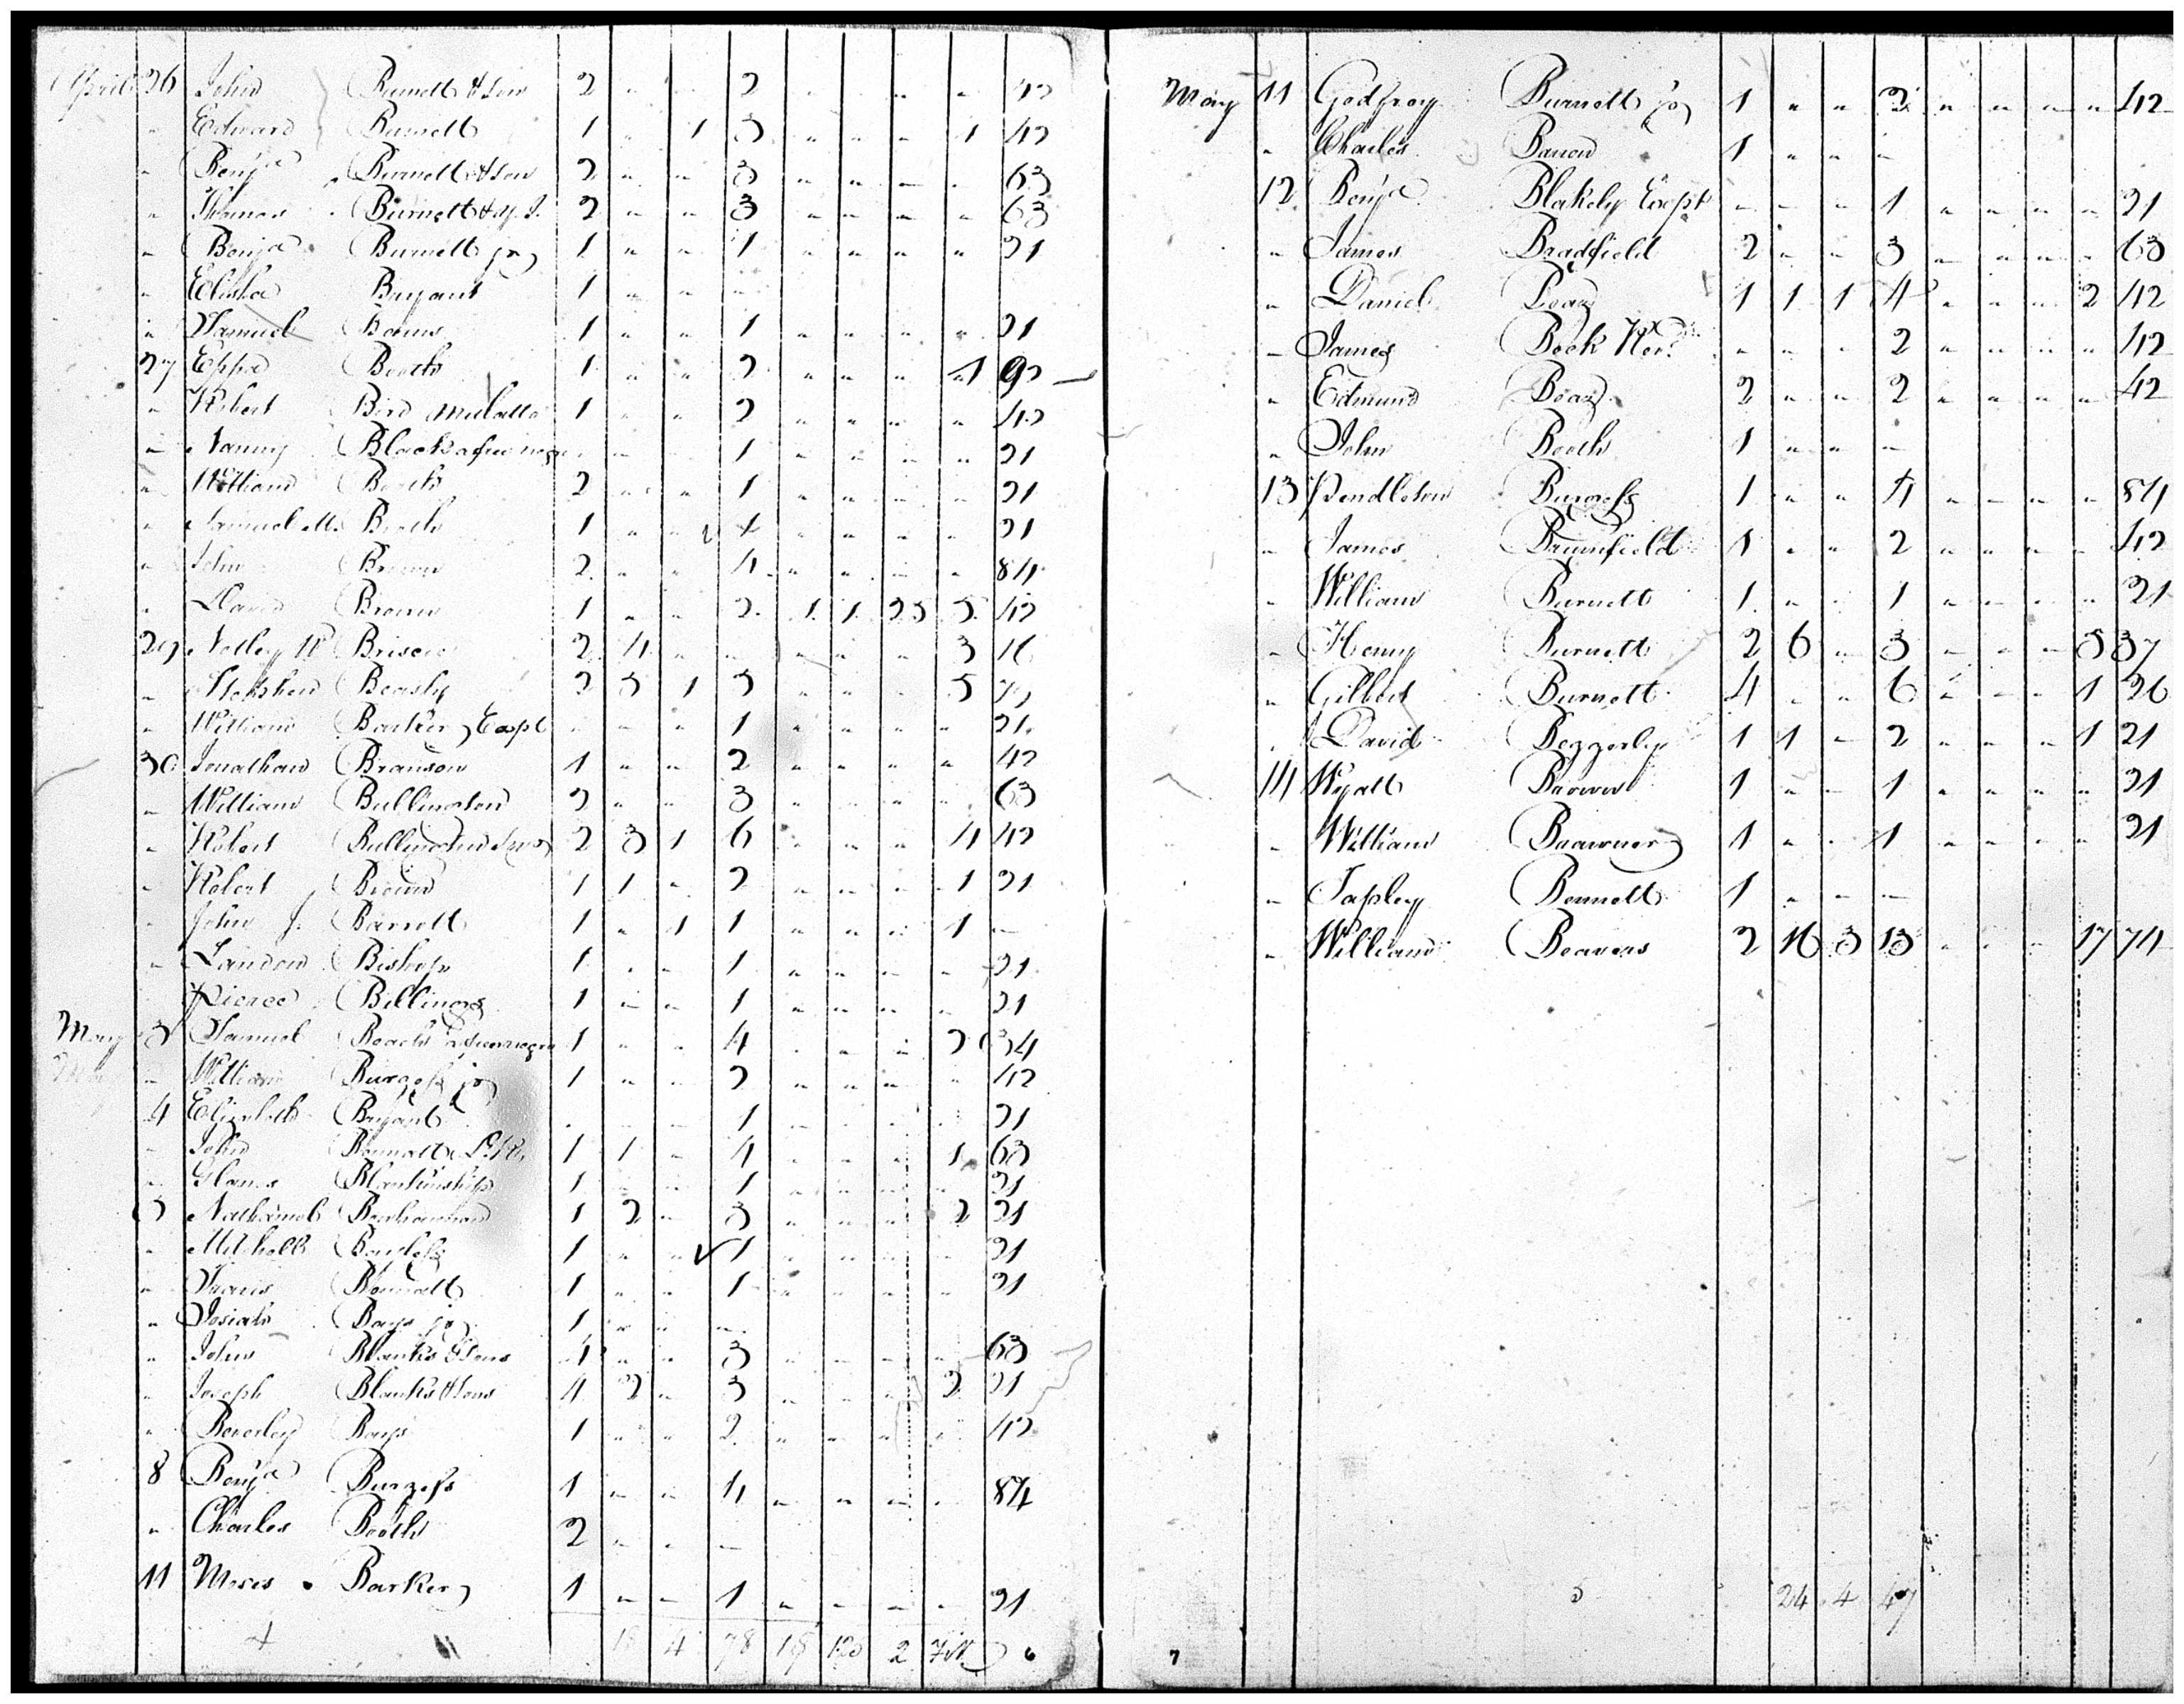 April 26 John Burnett & son 2 " " 2 " " " " 42
" Edward Burnett 1 " 1 3 " " " 1 42
" Benja Burnett & son 2 " " 3 " " " " 63
" Thomas Burnett & 2 " " 3 " " " " 63
" Benja Burnett jr 1 " " 1 " " " " 21
" Elisha Bryant 1 " " "
" Samuel 1 " " 1 " " " " 21
27 Eppa Booth 1 " " 2 " " " 1
" Robert Bird Mulatto 1 " " 2 " " " " 42
" Nanny Black a free negro " " " 1 " " " " 21
" William Booth 2 " " 1 " " " " 21
" Samuel M. Booth 1 " " " " " " 21
" John Brown 2 " " 4 " " " " 84
" David Brown 1 " " 2 1 1 42
29 Notley W Briscoe 2 4 " " " " " 3
" Stephen Beasly 1 " " "
" William Barker Exept " " " 1 " " " " 21
30 Jonathan Branson 1 " " 2 " " " " 42
" William Bullington 2 " " 3 " " " " 63
" Robert Bullington 2 3 1 6 " " " 4 42
" Robert Brown 1 1 " 2 " " " 1 21
" John J. Barrett 1 " 1 1 " " " 1 "
" Landon Bishop 1 " " 1 " " " " 21
Pierce Billings 1 " " 1 " " " " 21
May 3 Samuel Beach a free negro 1 " " 4 " " "
" William Burgess jr 1 " " 2 " " " " 42
4 Elizabeth Bryant " " " 1 " " " " 21
" John Bennett 1 1 " 4 " " " 1 63
" Blankinship 1 " " 1 " " " " 21
Nathaniel Buckhannan 1 2 " 3 " " " 2 21
" Mitchell 1 " " 1 " " " " 21
" Travis Bennett 1 " " 1 " " " " 21
" Josiah Bays jr 1 " " "
" John Blanks & Sons 4 " " 3 " " " " 63
" Joseph Blanks & Sons 4 2 " 3 " " " 2 21
" Beverley Bays 1 " " 2 " " " " 42
8 Benja Burgess 1 " " 4 " " " " 84
" Charles Booth 2 " " "
11 Moses Barker 1 " " 1 " " " " 21
4 78 2 6
May 11 Godfrey Burnett jr 1 " " 2 " " " " 42
" Charles Barrow 1 " " "
12 Benja Blakely Exept " " " 1 " " " " 21
" James Bradfield 2 " " 3 " " " " 63
" Daniel Boaz 1 1 1 4 " " " 2 42
" James Beck " " " 2 " " " " 42
" Edmund Boaz 2 " " 2 " " " " 42
" John Booth 1 " " "
13 Pendleton Burgess 1 " " 4 " " " " 84
" James Brumfield 1 " " 2 " " " " 42
" William Burnett 1 " " 1 " " " " 21
" Henry Burnett 2 6 " 3 " " " 5 37
" Gilbert Burnett 4 " " 6 " " " 1
" David Beggerly 1 1 " 2 " " " 1 21
14 Wyatt Brown 1 " " 1 " " " " 21
" William Brawner 1 " " 1 " " " " 21
" Tapley Bennett 1 " " "
" William Beavers 2 16 3 13 " " " 17 74
24 4 47
7